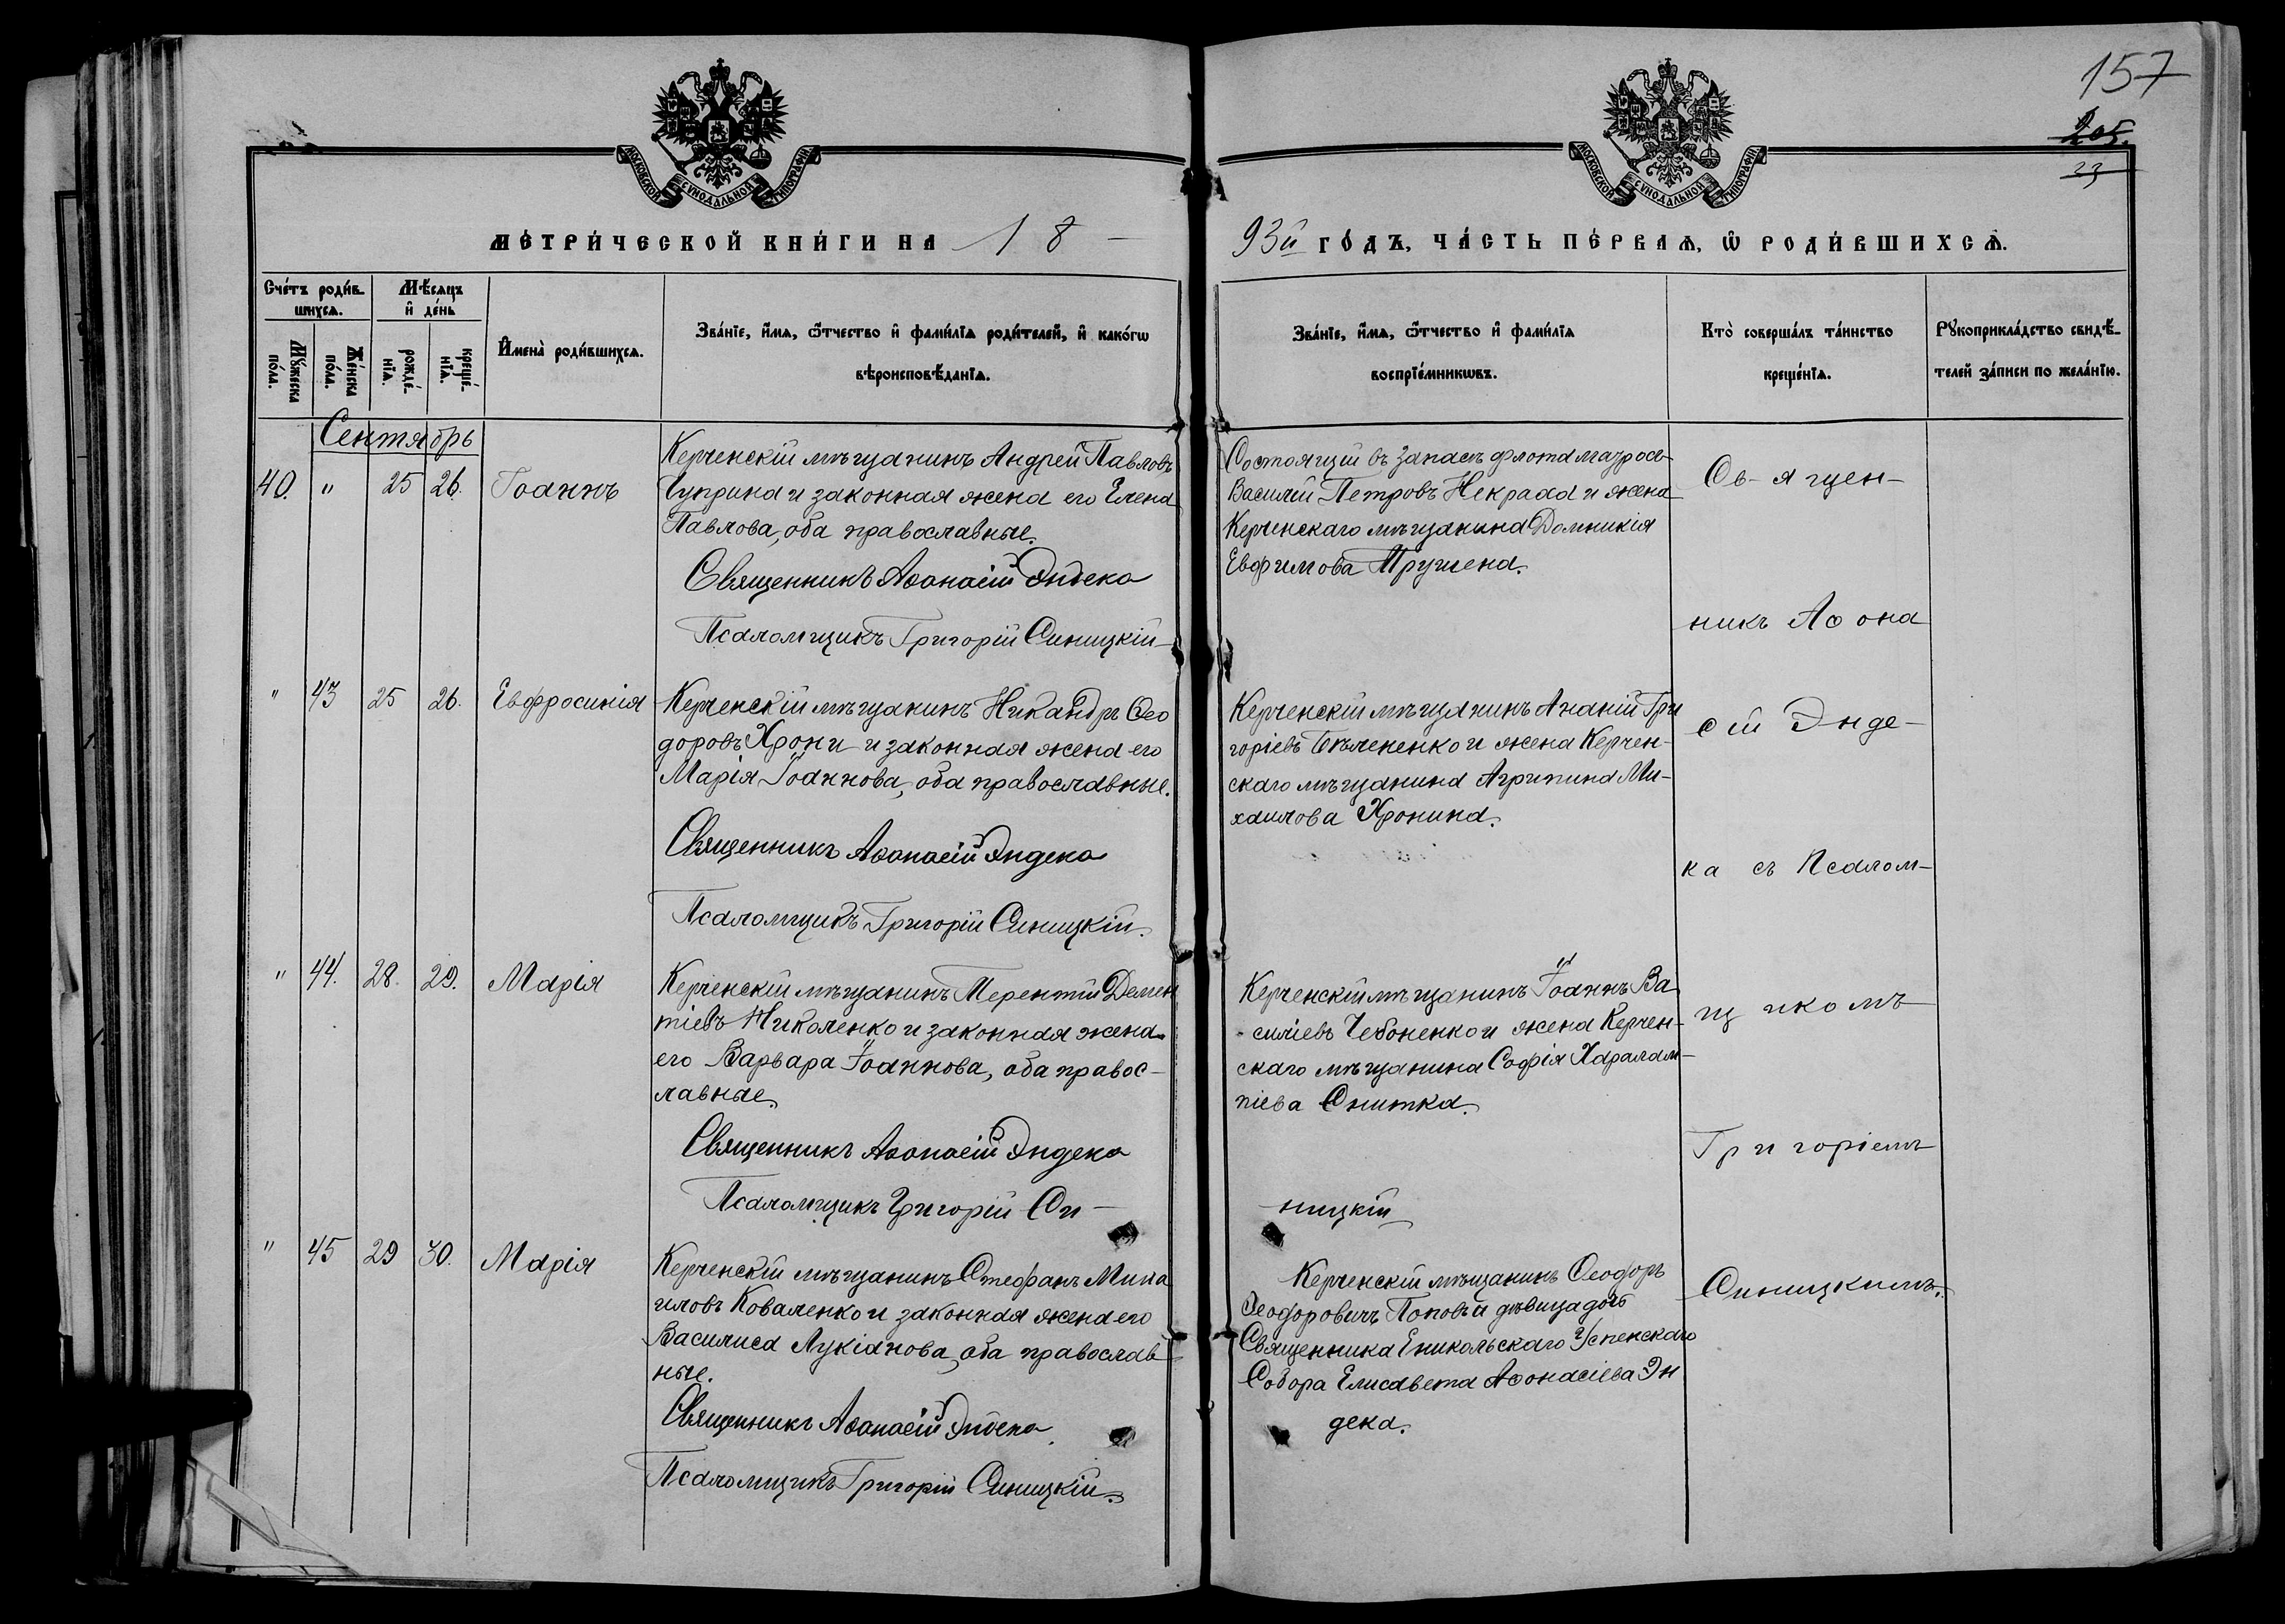 157
205.
23
МОСКОВСКОЙ СѴНОДАЛЬНОЙ ТИПОГРАФІИ
МОСКОВСКОЙ СѴНОДАЛЬНОЙ ТИПОГРАФІИ
МЕ́ТРИ́ЧЕСКОЙ КНИ́ГИ НА 18
93й ГО́ДЪ, ЧА́СТЬ ПЕ́РВАѦ, Ѡ҆ РОДИ́ВШИХСѦ.
Сче́тъ роди́в-
шихсѧ.
Мꙋ́жеска по́ла.
Же́нска по́ла.
Мѣ́сѧцъ
и҆ де́нь
рожде́-
нїѧ.
креще́-
нїѧ.
И҆мена̀ роди́вшихсѧ.
Зва́нїе, и҆́мѧ, ѻ҆́тчество и҆ фамі́лїѧ роди́телей, и҆ како́гѡ
вѣроисповѣ́данїѧ.
Зва́нїе, и҆́мѧ, ѻ҆́тчество и҆ фамі́лїѧ
воспрїе́мникѡвъ.
Кто̀ соверша́лъ та́инство
креще́нїѧ.
Рꙋкоприкла́дство свидѣ́-
телей за́писи по жела́нїю.
Сентябрь
40. " 25 26. Іоаннъ
Керченскій мѣщанинъ Андрей Павловъ
Чуприна и законная жена его Елена
Павлова, оба православные.
Священникъ Аѳанасій Эндека
Псаломщикъ Григорій Синицкій
Состоящій въ запасѣ флота матрось
Василій Петровъ Некраса и жена
Керченскаго мѣщанина Домникія
Евфимова
" 43 25 26. Евфросинія
Керченскій мѣщанинъ Никандръ Ѳео
доровъ Хрони и законная жена его
Марія Іоаннова, оба православные.
Священникъ Аѳанасій Эндека
Псаломщикъ Григорій Синицкій.
Керченскій мѣщанинъ Ананій Гри
горіевъ Бѣлененко и жена Керчен-
скаго мѣщанина Агрипина Ми-
хаилова Хронина.
" 44. 28. 29. Марія
Керченскій мѣщанинъ Терентій Демен
тіевъ Николенко и законная жена
его Варвара Іоаннова, оба правос-
лавные.
Священникъ Аѳанасій Эндека
Псаломщикъ Григорій Си-
ницкій
Керченскій мѣщанинъ Іоаннъ Ва
силіевъ Чебоненко и жена Керчен-
скаго мѣщанина Софія Харалам-
піева Снитка.
" 45 29 30. Марія
Керченскій мѣщанинъ Стефанъ Миха
иловъ Коваленко и законная жена его
Василиса Лукіанова, оба православ
ные.
Священникъ Аѳанасій Эндека
Псаломщикъ Григорій Синицкій.
Керченскій мѣщанинъ Ѳеодоръ
Ѳеодоровичъ Поповъ и дѣвица дочь
Священника Еникольскаго Успенскаго
Собора Елисавета Аѳонасіева Эн
дека.
Св-ящен-
никъ Аѳона
сій Энде-
ка съ Псалом-
щикомъ
Григоріемъ
Синицкимъ.